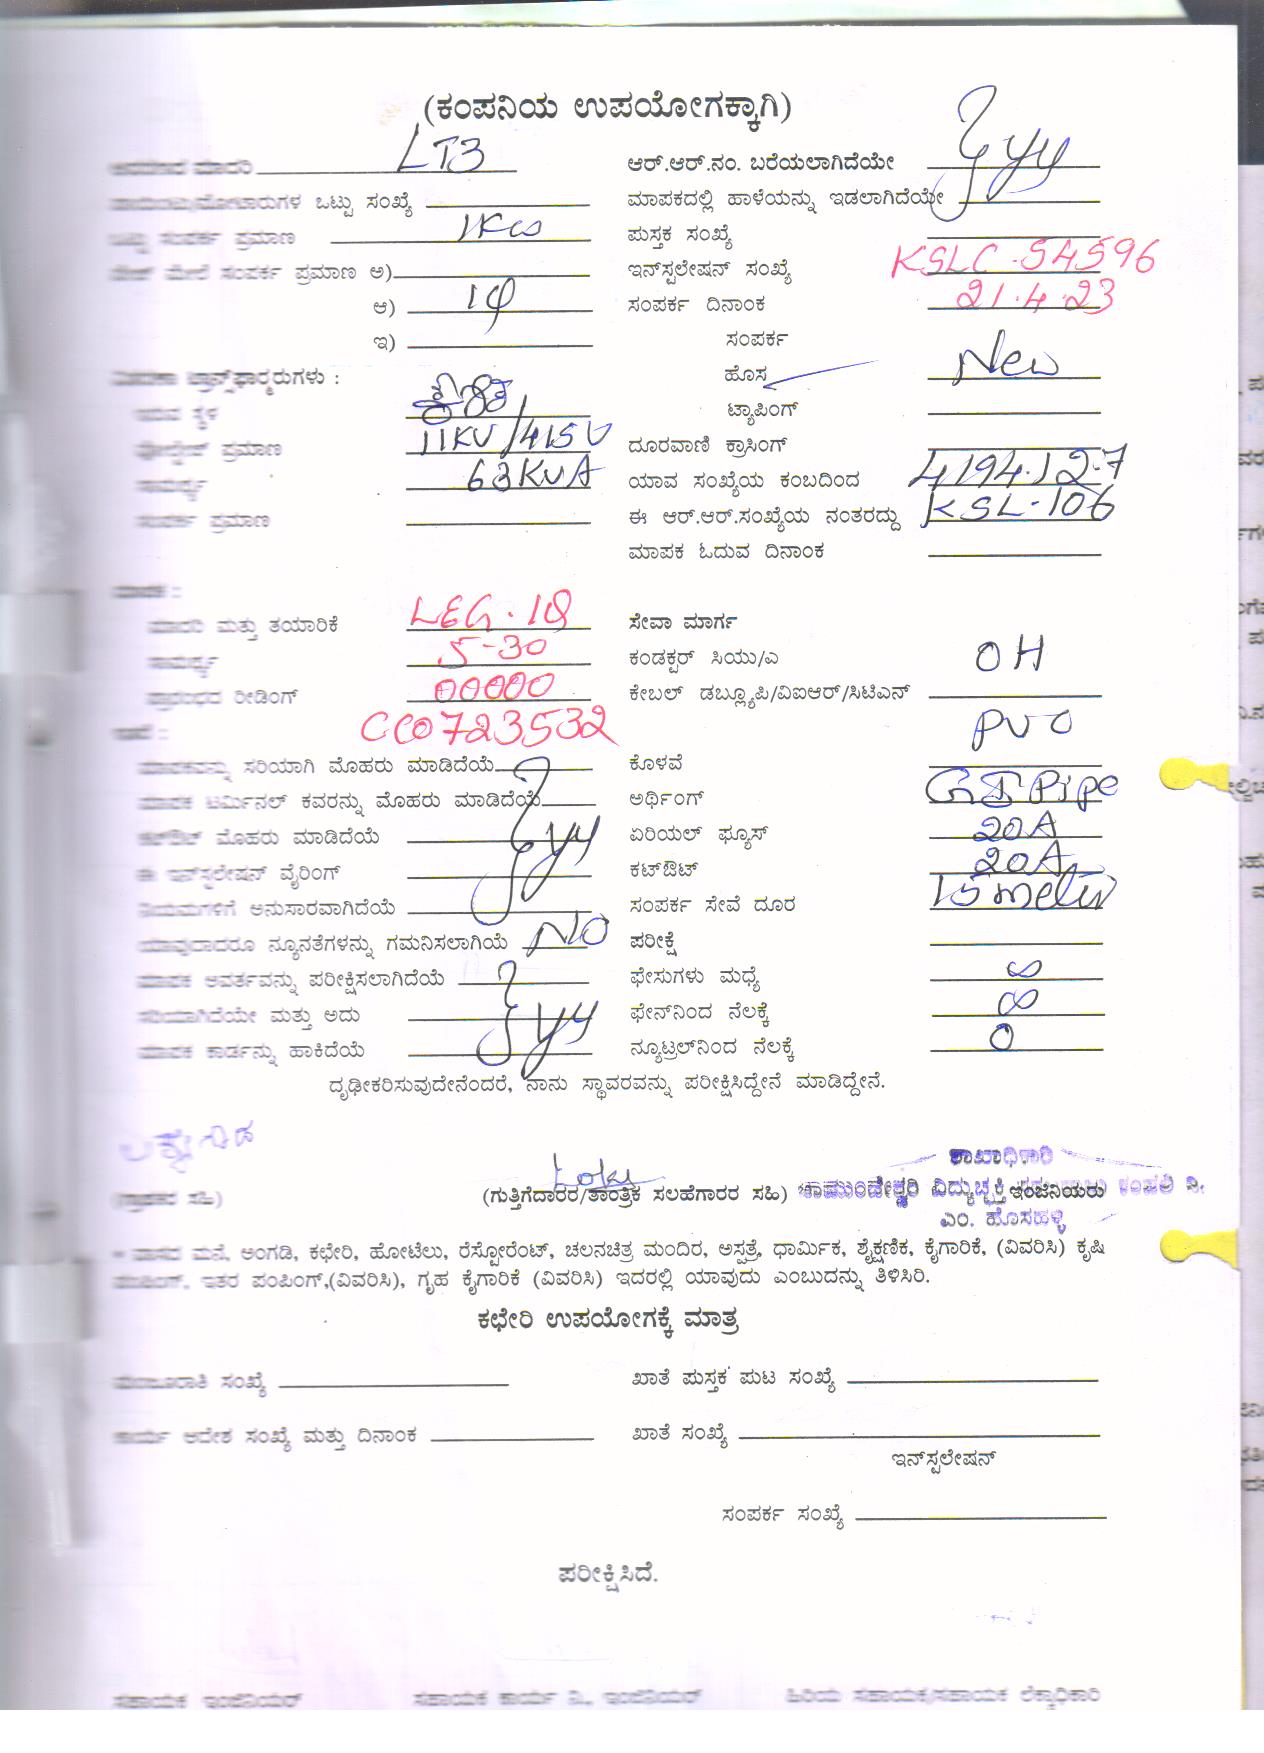 (ಕಂಪನಿಯ ಉಪಯೋಗಕ್ಕಾಗಿ)
ಮಾದರಿ LT3 ಆರ್.ಆರ್.ನಂ. ಬರೆಯಲಾಗಿದೆಯೇ
ಒಟ್ಟು ಸಂಖ್ಯೆ ಮಾಪಕದಲ್ಲಿ ಹಾಳೆಯನ್ನು ಇಡಲಾಗಿದೆಯೇ
ಒಟ್ಟು ಸಂಪರ್ಕ ಪ್ರಮಾಣ 1KW ಪುಸ್ತಕ ಸಂಖ್ಯೆ
ಮೇಲೆ ಸಂಪರ್ಕ ಪ್ರಮಾಣ ಅ) ಇನ್‌ಸ್ಟಲೇಷನ್ ಸಂಖ್ಯೆ KSLC-54596
ಆ) 1φ ಸಂಪರ್ಕ ದಿನಾಂಕ 21.4.23
ಇ) ಸಂಪರ್ಕ
ಟ್ರಾನ್ಸ್‌ಫಾರ್ಮರುಗಳು : ಹೊಸ New
ಇರುವ ಸ್ಥಳ ಟ್ಯಾಪಿಂಗ್
ವೋಲ್ಟೇಜ್ ಪ್ರಮಾಣ 11KV/415V ದೂರವಾಣಿ ಕ್ರಾಸಿಂಗ್
ಸಾಮರ್ಥ್ಯ 63KVA ಯಾವ ಸಂಖ್ಯೆಯ ಕಂಬದಿಂದ 4194.12-7
ಸಂಪರ್ಕ ಪ್ರಮಾಣ ಈ ಆರ್.ಆರ್.ಸಂಖ್ಯೆಯ ನಂತರದ್ದು KSL-106
ಮಾಪಕ ಓದುವ ದಿನಾಂಕ
ಮಾಪಕ :
ಮಾದರಿ ಮತ್ತು ತಯಾರಿಕೆ LEG.1φ ಸೇವಾ ಮಾರ್ಗ
ಸಾಮರ್ಥ್ಯ 5-30 ಕಂಡಕ್ಟರ್ ಸಿಯು/ಎ OH
ಪ್ರಾರಂಭದ ರೀಡಿಂಗ್ 00000 ಕೇಬಲ್ ಡಬ್ಲ್ಯೂಪಿ/ವಿಐಆರ್/ಸಿಟಿಎನ್
CC0723532 PVC
ಮಾಪಕವನ್ನು ಸರಿಯಾಗಿ ಮೊಹರು ಮಾಡಿದೆಯೆ ಕೊಳವೆ
ಮಾಪಕ ಟರ್ಮಿನಲ್ ಕವರನ್ನು ಮೊಹರು ಮಾಡಿದೆಯೆ ಅರ್ಥಿಂಗ್ GI Pipe
ಕಟ್‌ಔಟ್ ಮೊಹರು ಮಾಡಿದೆಯೆ ಏರಿಯಲ್ ಫ್ಯೂಸ್ 20A
ಈ ಇನ್‌ಸ್ಟಲೇಷನ್ ವೈರಿಂಗ್ ಕಟ್‌ಔಟ್ 20A
ನಿಯಮಗಳಿಗೆ ಅನುಸಾರವಾಗಿದೆಯೆ ಸಂಪರ್ಕ ಸೇವೆ ದೂರ 15 meter
ಯಾವುದಾದರೂ ನ್ಯೂನತೆಗಳನ್ನು ಗಮನಿಸಲಾಗಿಯೆ NO ಪರೀಕ್ಷೆ
ಮಾಪಕ ಅವರ್ತವನ್ನು ಪರೀಕ್ಷಿಸಲಾಗಿದೆಯೆ ಫೇಸುಗಳು ಮಧ್ಯೆ ∞
ಸರಿಯಾಗಿದೆಯೇ ಮತ್ತು ಅದು ಫೇನ್‌ನಿಂದ ನೆಲಕ್ಕೆ ∞
ಮಾಪಕ ಕಾರ್ಡನ್ನು ಹಾಕಿದೆಯೆ ನ್ಯೂಟ್ರಲ್‌ನಿಂದ ನೆಲಕ್ಕೆ 0
ದೃಢೀಕರಿಸುವುದೇನೆಂದರೆ, ನಾನು ಸ್ಥಾವರವನ್ನು ಪರೀಕ್ಷಿಸಿದ್ದೇನೆ ಮಾಡಿದ್ದೇನೆ.
ಶಾಖಾಧಿಕಾರಿ
(ಗ್ರಾಹಕರ ಸಹಿ) (ಗುತ್ತಿಗೆದಾರರ/ತಾಂತ್ರಿಕ ಸಲಹೆಗಾರರ ಸಹಿ) ಚಾಮುಂಡೇಶ್ವರಿ ವಿದ್ಯುಚ್ಛಕ್ತಿ ಇಂಜಿನಿಯರು
ಎಂ. ಹೊಸಹಳ್ಳಿ
* ವಾಸದ ಮನೆ, ಅಂಗಡಿ, ಕಛೇರಿ, ಹೋಟೆಲು, ರೆಸ್ಟೋರೆಂಟ್, ಚಲನಚಿತ್ರ ಮಂದಿರ, ಅಸ್ಪತ್ರೆ, ಧಾರ್ಮಿಕ, ಶೈಕ್ಷಣಿಕ, ಕೈಗಾರಿಕೆ, (ವಿವರಿಸಿ) ಕೃಷಿ
ಇತರ ಪಂಪಿಂಗ್,(ವಿವರಿಸಿ), ಗೃಹ ಕೈಗಾರಿಕೆ (ವಿವರಿಸಿ) ಇದರಲ್ಲಿ ಯಾವುದು ಎಂಬುದನ್ನು ತಿಳಿಸಿರಿ.
ಕಛೇರಿ ಉಪಯೋಗಕ್ಕೆ ಮಾತ್ರ
ಮಂಜೂರಾತಿ ಸಂಖ್ಯೆ ಖಾತೆ ಪುಸ್ತಕ ಪುಟ ಸಂಖ್ಯೆ
ಕಾರ್ಯ ಆದೇಶ ಸಂಖ್ಯೆ ಮತ್ತು ದಿನಾಂಕ ಖಾತೆ ಸಂಖ್ಯೆ
ಇನ್‌ಸ್ಟಲೇಷನ್
ಸಂಪರ್ಕ ಸಂಖ್ಯೆ
ಪರೀಕ್ಷಿಸಿದೆ.
ಸಹಾಯಕ ಇಂಜಿನಿಯರ್ ಸಹಾಯಕ ಕಾರ್ಯ ನಿ., ಇಂಜಿನಿಯರ್ ಹಿರಿಯ ಸಹಾಯಕ/ಸಹಾಯಕ ಲೆಕ್ಕಾಧಿಕಾರಿ